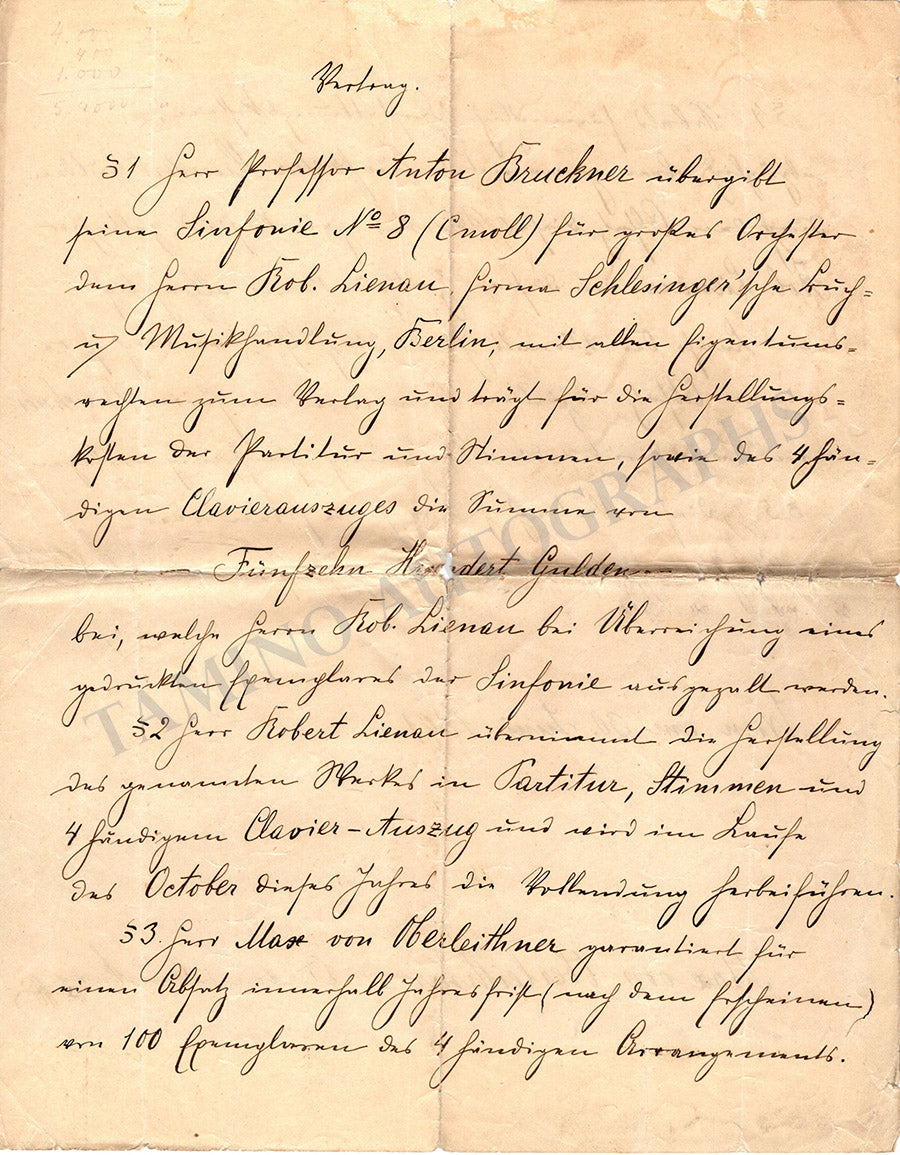 Vertrag.
§1 Herr Professor Anton Bruckner übergibt
seine Sinfonie No 8 (C moll) für großes Orchester
dem Herrn Rob. Lienau, Firma Schlesinger'sche Buch-
u. Musikhandlung, Berlin, mit allen Eigentums-
rechten zum Verlag und trägt für die Herstellungs-
kosten der Partitur und Stimmen, sowie des 4 hän-
digen Clavierauszuges die Summe von
Fünfzehn Hundert Gulden
bei, welche Herrn Rob. Lienau bei Überreichung eines
gedruckten Exemplares der Sinfonie ausgezalt werden.
§2 Herr Robert Lienau übernimmt die Herstellung
des genannten Werkes in Partitur, Stimmen und
4 händigem Clavier-Auszug und wird im Laufe
des October dieses Jahres die Vollendung herbeiführen.
§3. Herr Max von Oberleithner garantiert für
einen Absatz innerhalb Jahresfrist (nach dem Erscheinen)
von 100 Exemplaren des 4 händigen Arrangements.
TAMINO AUTOGRAPHS